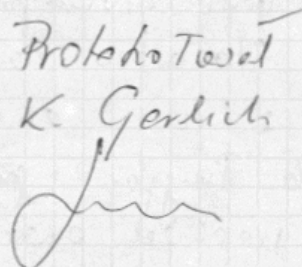 Protokotoval
K. Gerlich